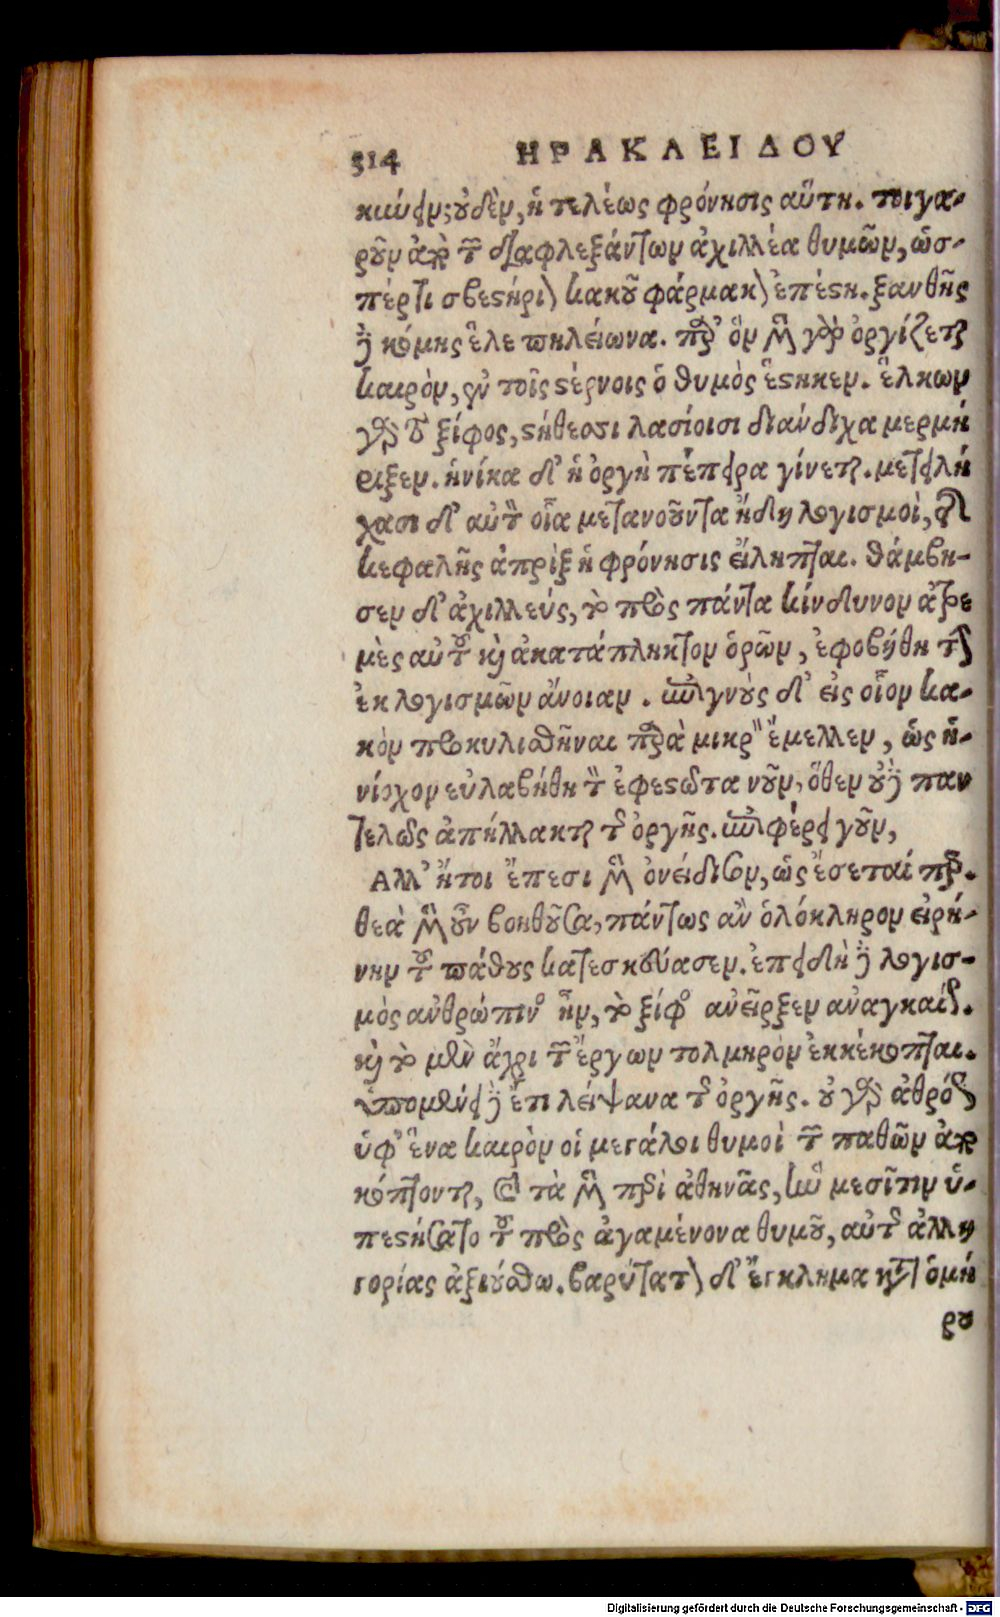 314 ΗΡΑΚΛΕΙΔΟΥ
οὐδὲν, ἢ τελέως φρόνησις αὕτη. τοιγα-
ροῦν ἀπὸ τῶν διαφλεξάντων ἀχιλλέα θυμῶν, ὡσ-
πέρτι σβεστήριον κακοῦ φάρμακον ἐπέστη. ξανθῆς
δὲ κόμης ἕλε πηλείωνα. παρ' ὃν μὲν γὰρ ὀργίζεται
καιρὸν, ἐν τοῖς στέρνοις ὁ θυμὸς ἕστηκεν. ἕλκων
γὰρ τὸ ξίφος, στήθεσσι λασίοισι διάνδιχα μερμή
ριξεν. ἡνίκα δ' ἡ ὀργὴ πέπειρα γίνεται. μετειλή
χασι δ' αὐτὸν οἷα μετανοοῦντα ἤδη λογισμοὶ,
κεφαλῆς ἀπρὶξ ἡ φρόνησις εἴληπται. θάμβη-
σεν δ' ἀχιλλεύς, τὸ πρὸς πάντα κίνδυνον ἀτρε
μὲς αὐτοῦ καὶ ἀκατάπληκτον ὁρῶν, ἐφοβήθη τὴν
ἐκ λογισμῶν ἄνοιαν. ἐπιγνοὺς δ' εἰς οἷον κα-
κὸν προκυλισθῆναι παρὰ μικρὸν ἔμελλεν, ὡς ἡ-
νίοχον εὐλαβήθη τὸν ἐφεστῶτα νοῦν, ὅθεν οὐδὲ παν
τελῶς ἀπήλλακται τῆς ὀργῆς. ἐπιφέρει γοῦν,
Ἀλλ' ἤτοι ἔπεσι μὲν ὀνείδισον, ὡς ἔσεταί περ.
θεὰ μὲν οὖν βοηθοῦσα, πάντως ἂν ὁλόκληρον εἰρή-
νην τοῦ πάθους κατεσκεύασεν. ἐπειδὴ δὲ λογισ-
μὸς ἀνθρώπινος ἦν, τὸ ξίφος ἀνεῖρξεν ἀναγκαίως.
καὶ τὸ μὲν ἄχρι τῶν ἔργων τολμηρὸν ἐκκέκοπται.
ὑπομένει δὲ ἔτι λείψανα τῆς ὀργῆς. οὐ γὰρ ἀθρόως
ὑφ' ἕνα καιρὸν οἱ μεγάλοι θυμοὶ τῶν παθῶν ἀπο
κόπτονται, καὶ τὰ μὲν περὶ ἀθηνᾶς, ἣν μεσῖτιν ὑ-
πεστήσατο τοῦ πρὸς ἀγαμένονα θυμοῦ, αὐτῆς ἀλλη
γορίας ἀξιούσθω. βαρύτατον δ' ἔγκλημα κατὰ ὁμή
ρου
Digitalisierung gefördert durch die Deutsche Forschungsgemeinschaft - DFG